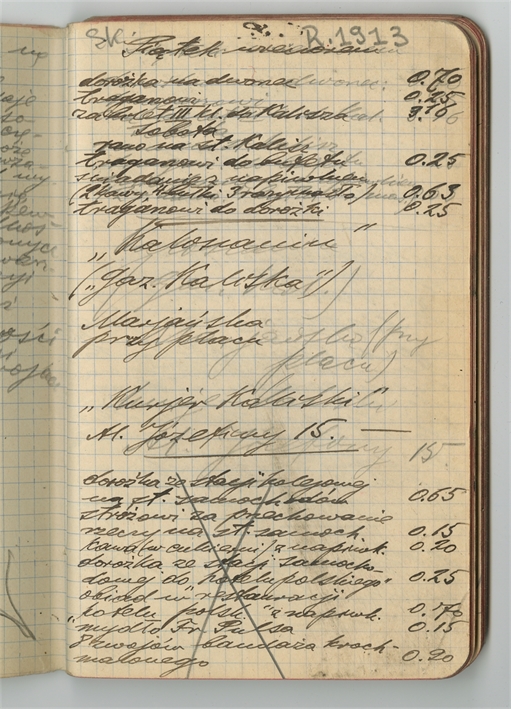 R. 1913
Piątek wieczorem
dorożka na dworzec 0.70
tragarzowi 0.25
za bilet III kl. do Kalisza 3.16
Sobota
rano na st. Kalisz
tragarzowi do bufetu 0.25
śniadanie z napiwkiem
(2 kawy 4 bułki 3 razy masło) 0.63
tragarzowi do dorożki 0.25
"Kaliszanin"
("Gaz. Kaliska").
Marjańska
przy placu
(przy
placu)
"Kurjer Kaliski"
Al. Józefiny 15. —
15
dorożka ze stacji kolejowej
na st. samochodów 0.65
stróżowi za przechowanie
rzeczy na st. samoch. 0.15
kawa (w cukierni) z napiwk. 0.20
dorożka ze stacji samocho-
dowej do hotelu "polskiego" 0.25
obiad w restauracji
hotelu "polsk." z napiwk. 0.70
"mydło Fr. Pulsa 0.15
8 zwojów bandaża kroch-
malonego 0.90